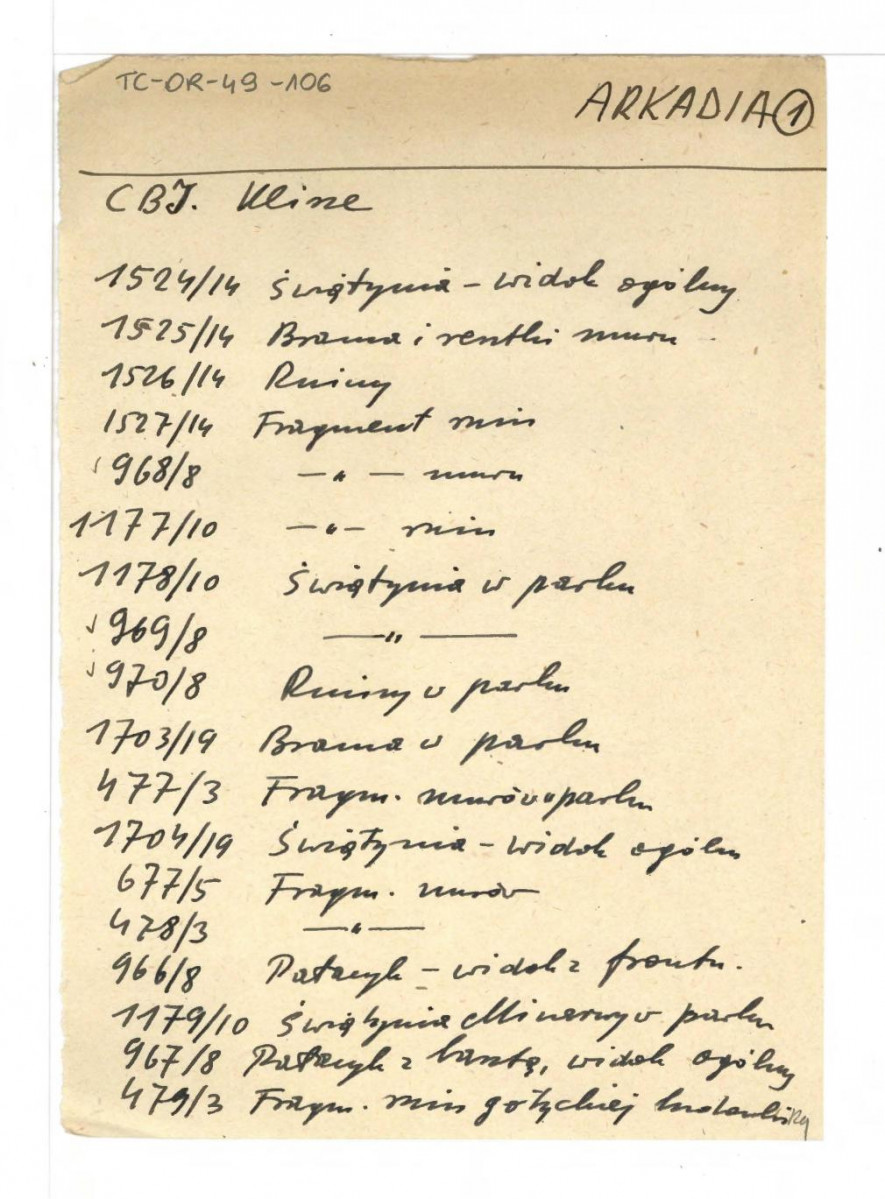 TC-OR-49-106
ARKADIA 1
CBI. Klisze
1524/14 Świątynia - widok ogólny
1525/14 Brama i resztki muru
1526/14 Ruiny
1527/14 Fragment ruin
968/8 —"— muru
1177/10 —"— ruin
1178/10 Świątynia w parku
969/8 —"—
970/8 Ruiny w parku
1703/19 Brama w parku
477/3 Fragm. murów w parku
1704/19 Świątynia - widok ogóln
677/5 Fragm. murów
478/3 —"—
966/8 Pałacyk - widok z frontu.
1179/10 Świątynia Minerwy w parku
967/8 Pałacyk z basztą, widok ogólny
479/3 Fragm. ruin gotyckiej budowli